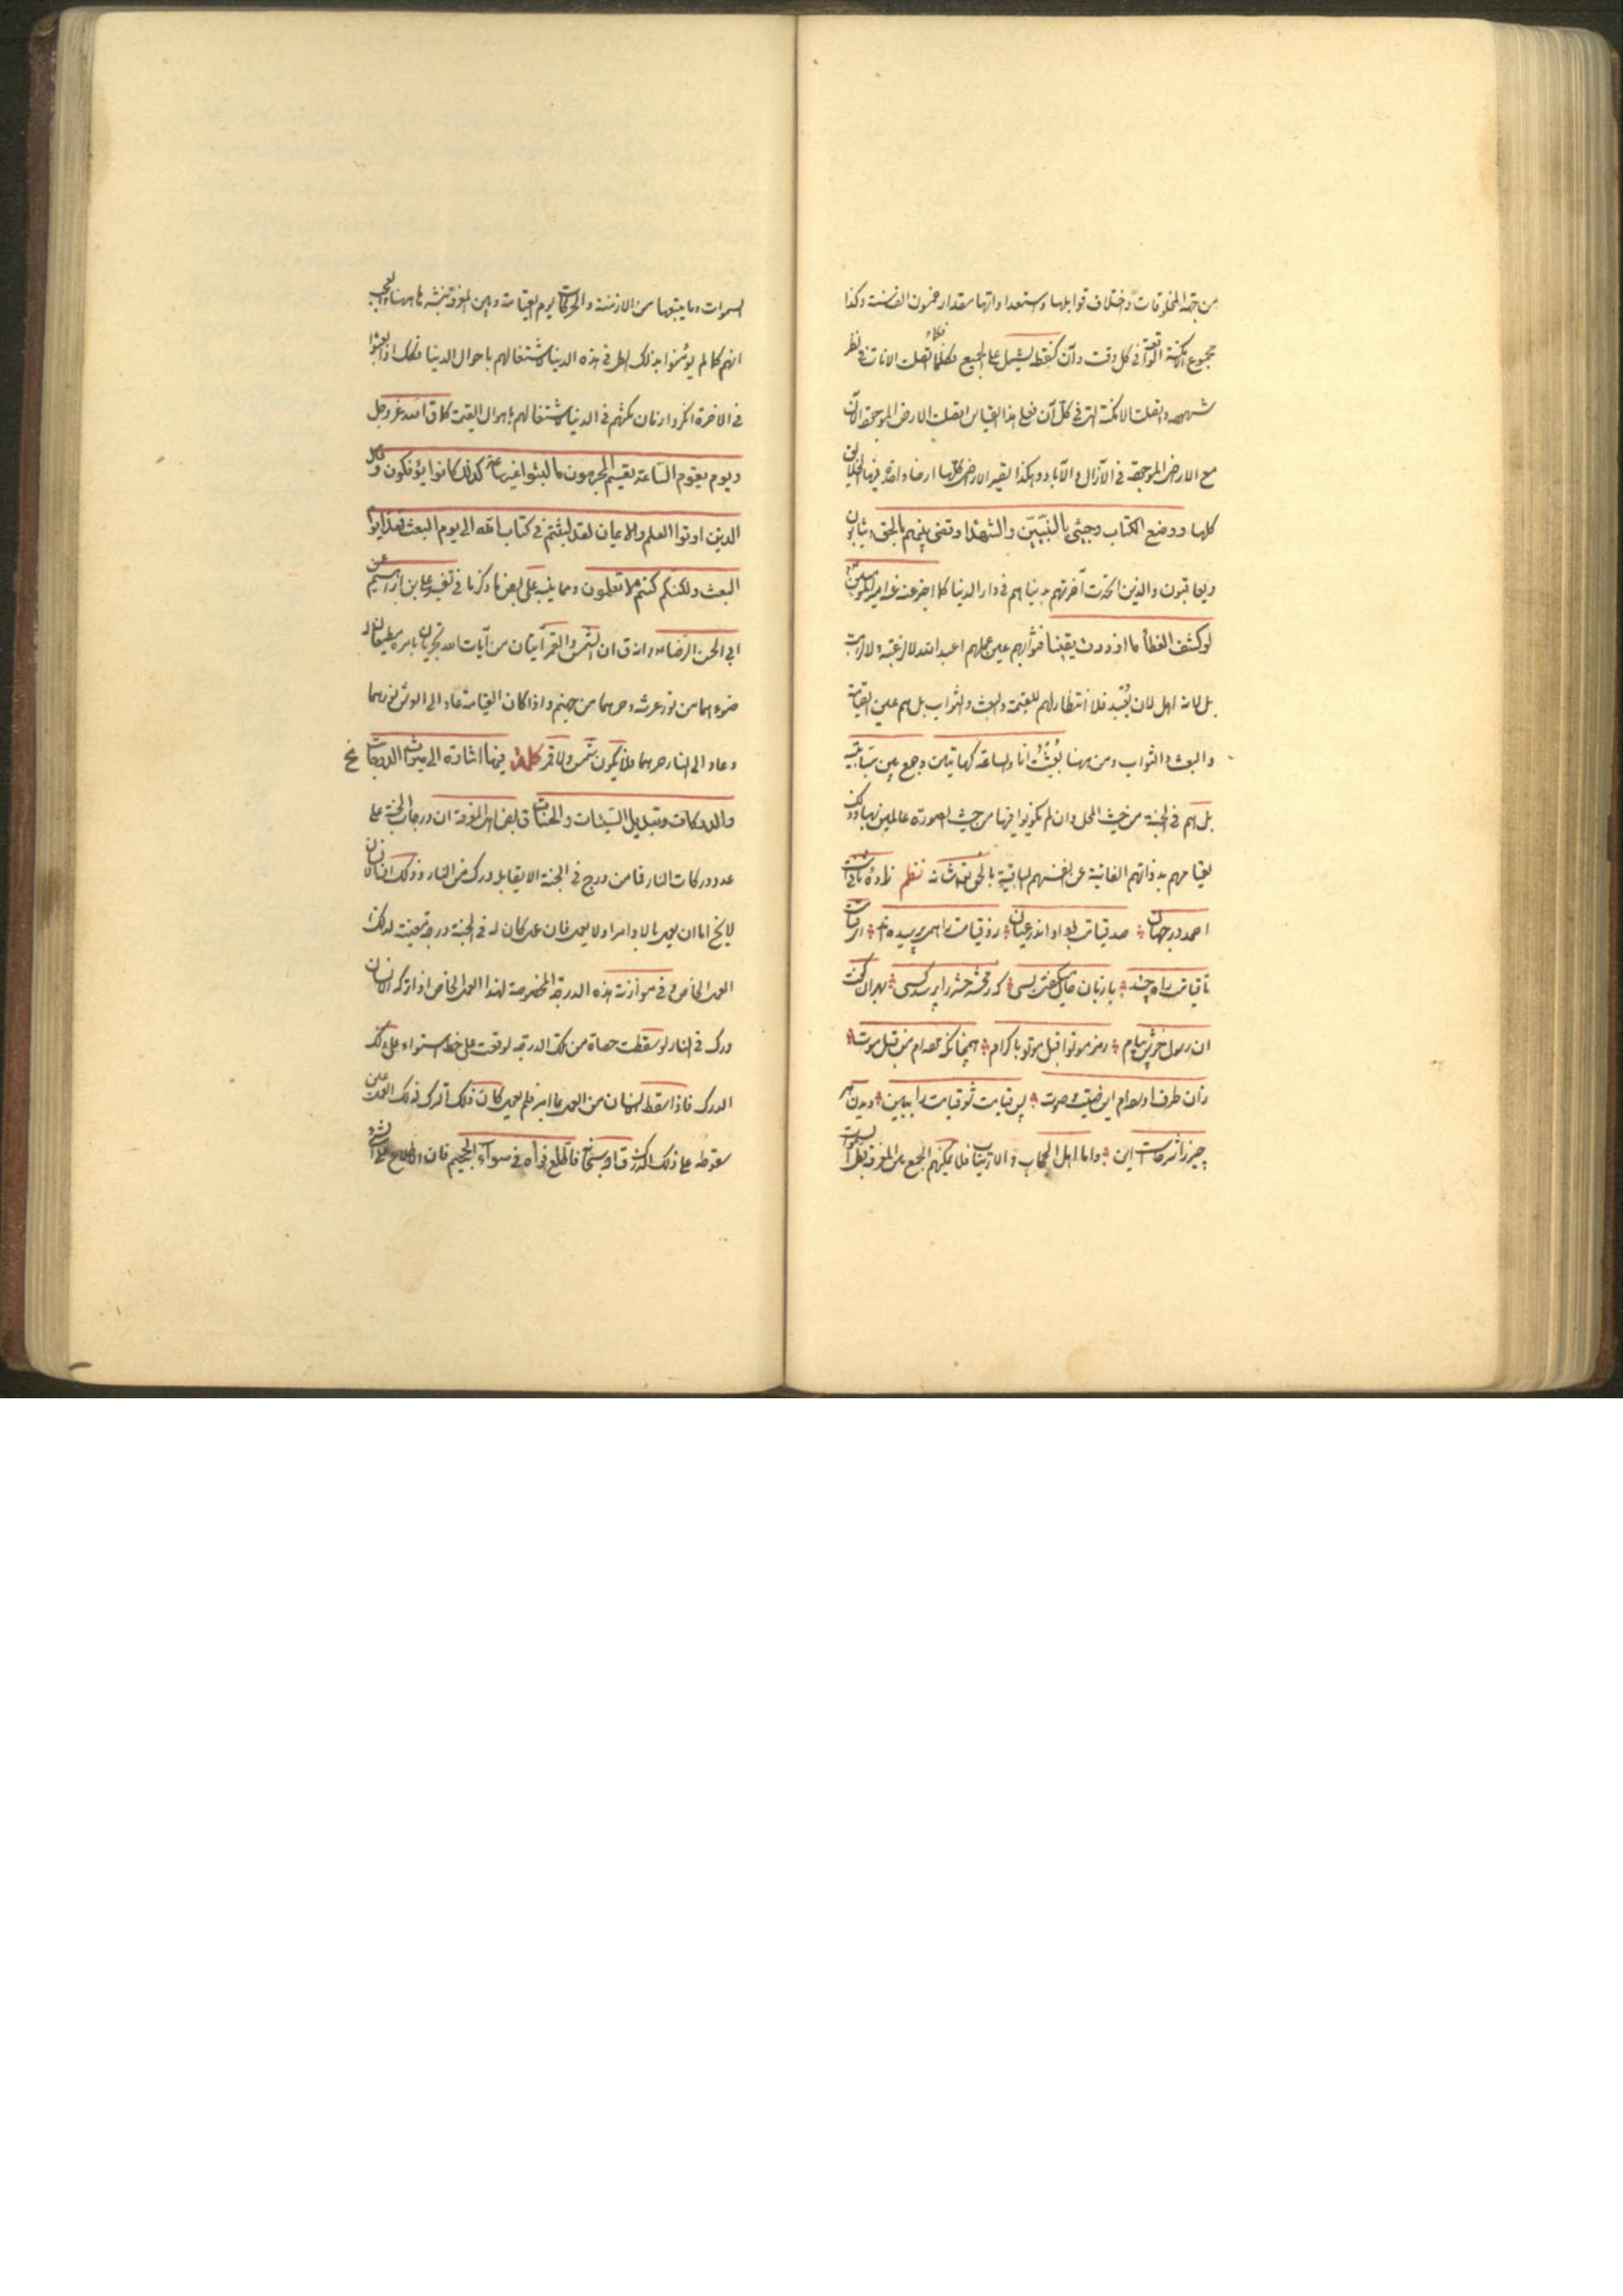 من جهة المخلوقات واختلاف قوابلها واستعداداتها مقدار خمسون الف سنة وكذا
مجموع الامكنة الواقعة في كل وقت وآن كنقطة يشمل على الجميع فكلما اتصلت الانات في نظر
شهوده واتصلت الامكنة التي في كل آن فعلى هذا القياس اتصلت الارض الموجودة الآن
مع الارض الموجودة في الآزال والآباد وهكذا يصير الارض كلها ارضا واحدة فيها الخلايق
كلها ووضع الكتاب وجيئ بالنبيين والشهداء وقضى بينهم بالحق ويثابون
ويعاقبون والذين اتحدت آخرتهم بدنياهم في دار الدنيا كما اخبر عنه امير المؤمنين
لو كشف الغطاء ما ازددت يقينا فثوابهم عين عملهم اعبد الله لا لرغبة ولا لرهبة
بل لانه اهل لان يعبد فلا انتظار لهم للقيمة والبعث والثواب بل هم عين القيامة
والبعث والثواب ومن ههنا بعثت انا والساعة كهاتين وجمع بين سبابتيه
بل هم في الجنة من حيث المحل وان لم يكونوا فيها من حيث الصورة عالمين بها وذلك
لقيامهم بذواتهم الفانية عن انفسهم الباقية بالحق تعالى شانه نظم زاده ثانى است
احمد در جهان صد قيامت بود او اندر عيان زو قيامت را همى پرسيده اند اى قيامت
تا قيامت راه چند با زبان حال ميگفتى بسى كه ز محشر حشر را پرسد كسى بهر آن گفت
آن رسول خوش پيام رمز موتوا قبل موت يا كرام همچنانكه مرده ام من قبل موت
زآن طرف آورده ام اين صيت و صوت پس قيامت شو قيامت را ببين ديدن هر
چيز را شرط است اين واما اهل الحجاب والارتياب فلا يمكنهم الجمع بين المعرفة بطى
السموات وما يتبعها من الازمنة والحركات يوم القيامة وبين المعرفة بنشرها ههنا والعجب
انهم كما لم يؤمنوا بذلك الطي في هذه الدنيا لاشتغالهم باحوال الدنيا فكذلك اذا بعثوا
في الاخرة انكروا زمان مكثهم في الدنيا لاشتغالهم باهوال القيمة كما ق الله عز وجل
ويوم يقوم الساعة يقسم المجرمون ما لبثوا غير ساعة كذلك كانوا يؤفكون وقال
الذين اوتوا العلم والايمان لقد لبثتم في كتاب الله الى يوم البعث فهذا يوم
البعث ولكنكم كنتم لا تعلمون ومما ينبه على بعض ما ذكر ما في تفسير علي بن ابراهيم عن
ابي الحسن الرضا انه ق ان الشمس والقمر آيتان من آيات الله تجريان بامره مطيعان له
ضوءهما من نور عرشه وحرهما من جهنم واذا كان القيامة عاد الى العرش نورهما
وعاد الى النار حرهما فلا يكون شمس ولا قمر كلمة فيها اشارة الى ميراث الدرجات
والدركات وتبديل السيئات والحسنات ق بعض اهل المعرفة ان درجات الجنة على
عدد دركات النار فما من درج في الجنة الا يقابل درك من النار وذلك ان الانسان
لا يخ اما ان يعمل بالاوامر او لا يعمل فان عمل كان له في الجنة درجة معينة لذلك
العمل الخاص وفي موازنة هذه الدرجة المخصوصة لهذا العمل الخاص اذا تركه الانسان
درك في النار لو سقطت حصاة من تلك الدرجة لوقعت على خط استواء على ذلك
الدرك فاذا سقط الانسان من العمل بما امر فلم يعمل كان ذلك الترك لذلك العمل عين
سقوطه على ذلك الدرك ق الله سبحانه فاطلع فرآه في سواء الجحيم فان الاطلاع على الشيء